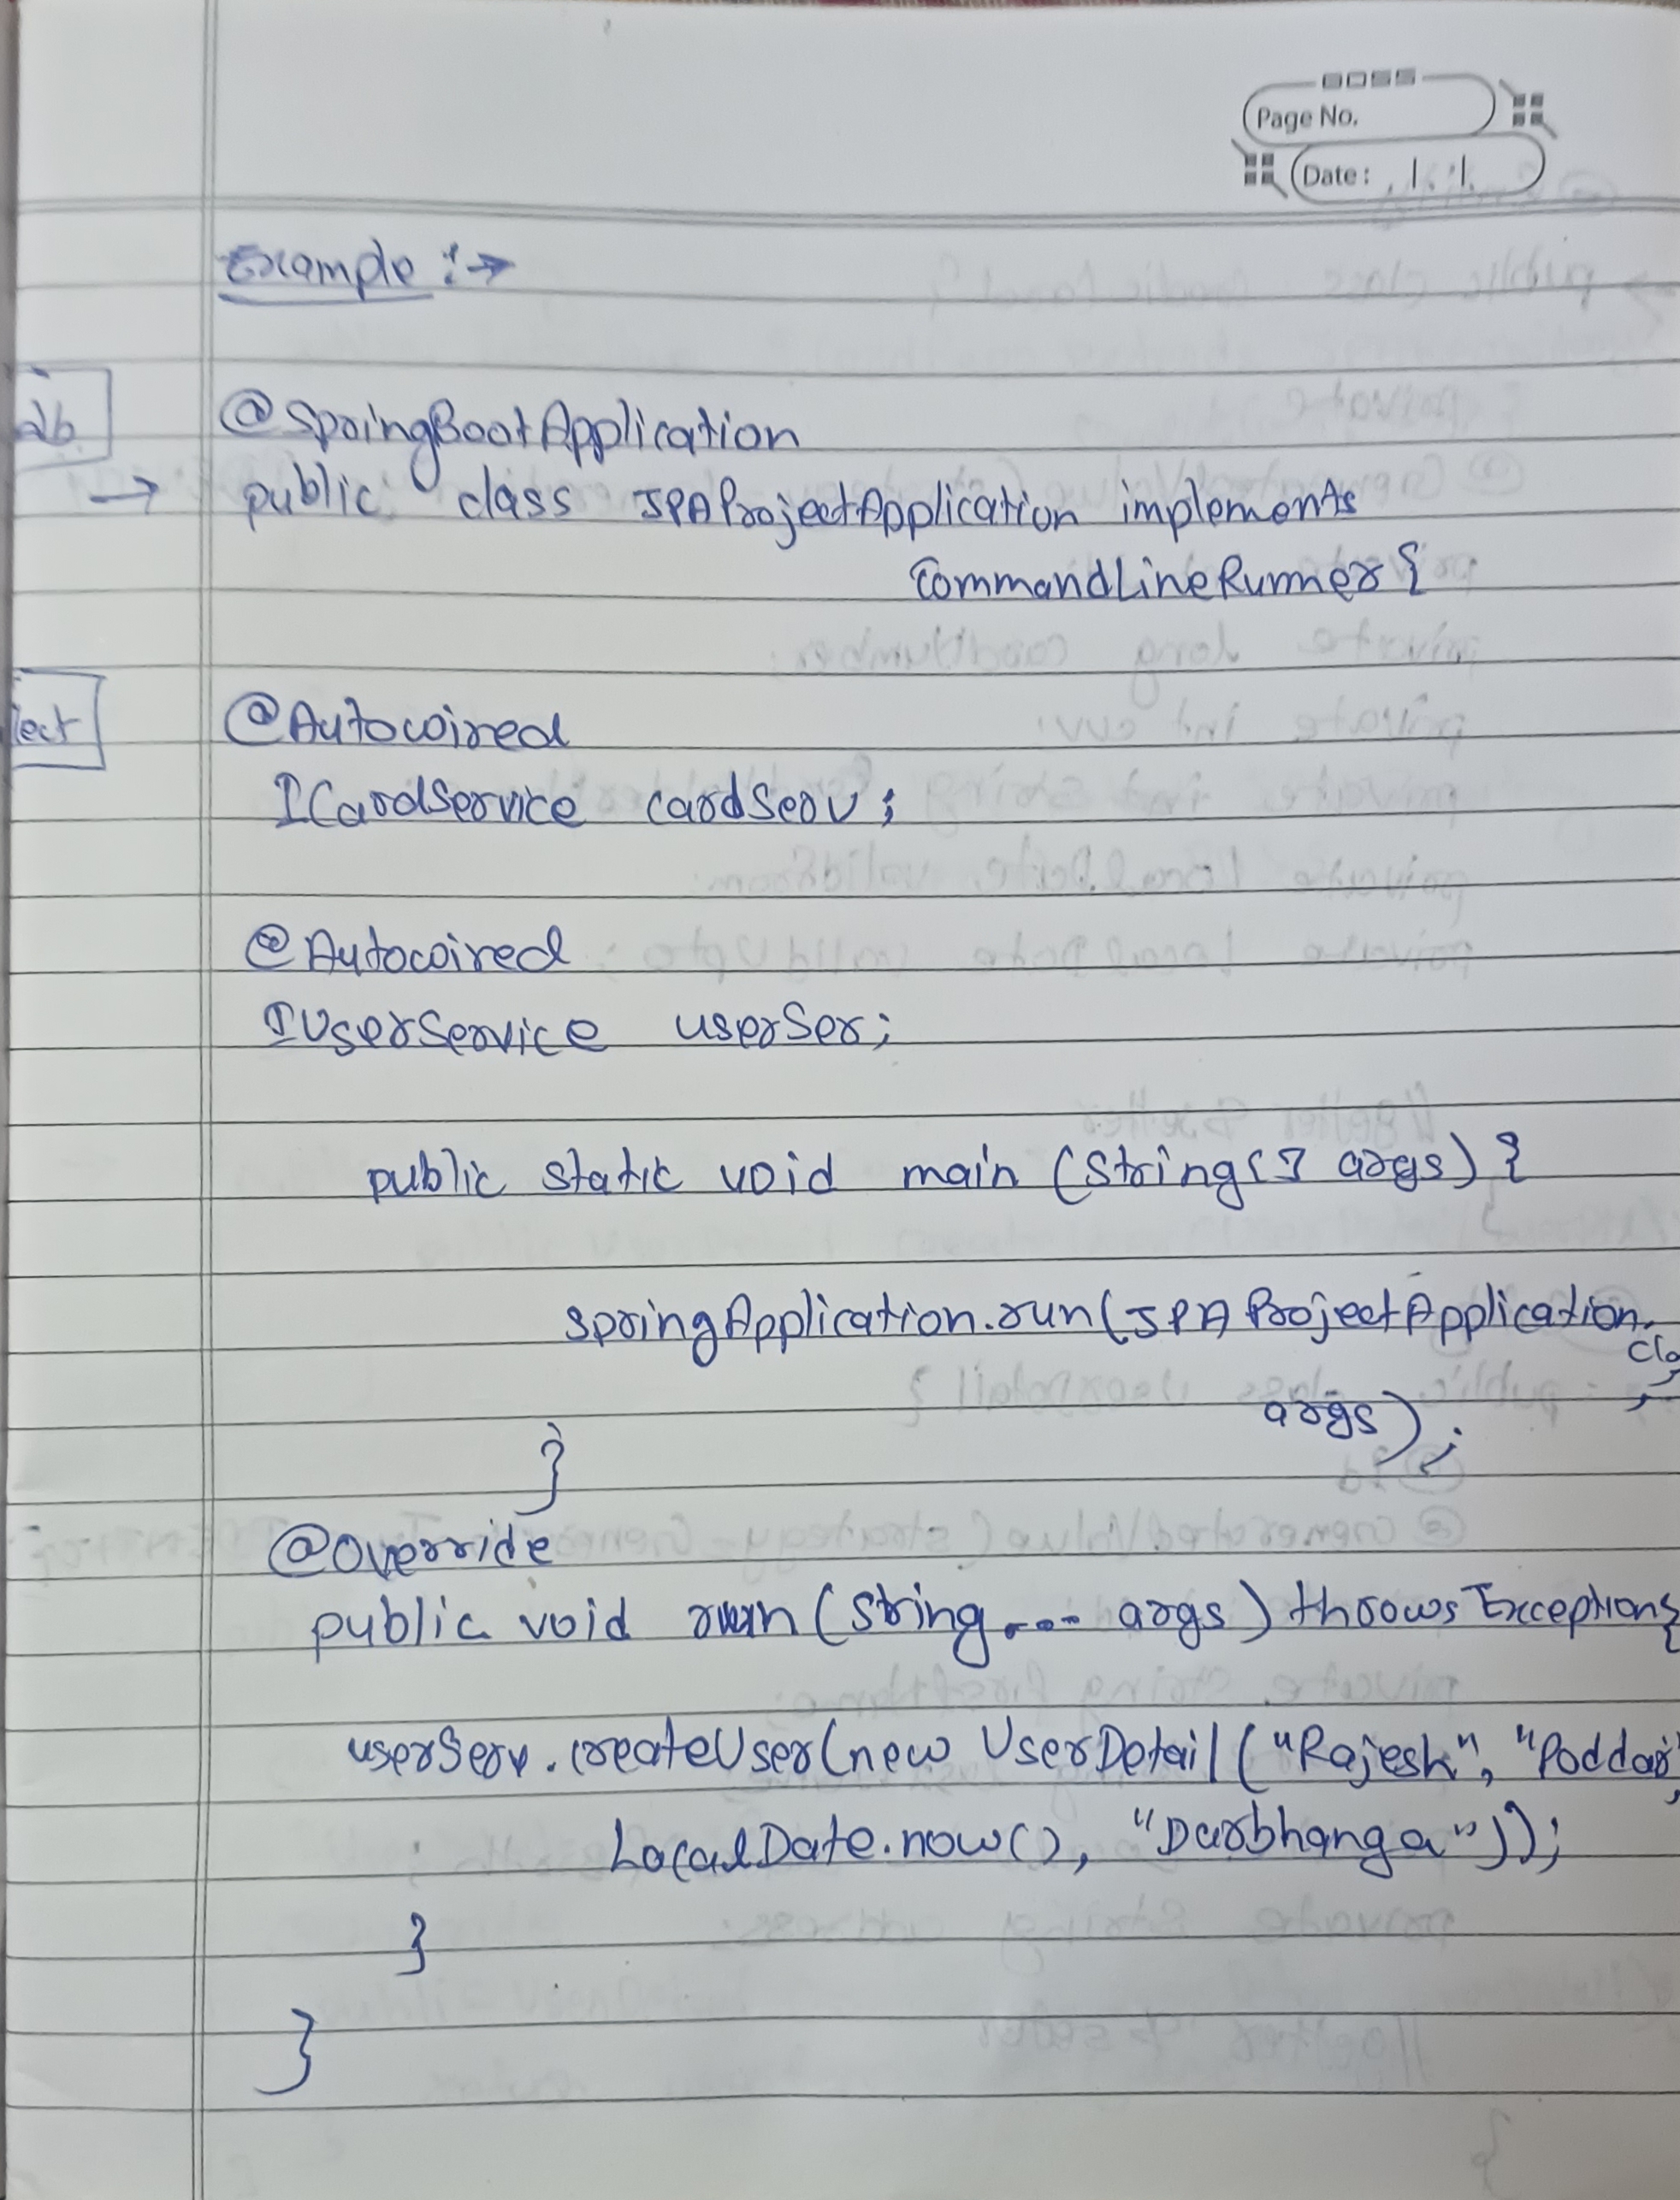 BOSS
Page No.
Date :
Example :→
db
@SpringBootApplication
→ public class JPAProjectApplication implements
CommandLineRunner {
ject
@Autowired
ICardService cardServ ;
@Autowired
IUserService userSer;
public static void main (String[] args) {
springApplication.run(JPAProjectApplication.
cla
,
args);
}
@Override
public void run (String... args) throws Exception{
userServ.createUser(new UserDetail ("Rajesh", "Poddar",
LocalDate.now(), "Darbhanga"));
}
}